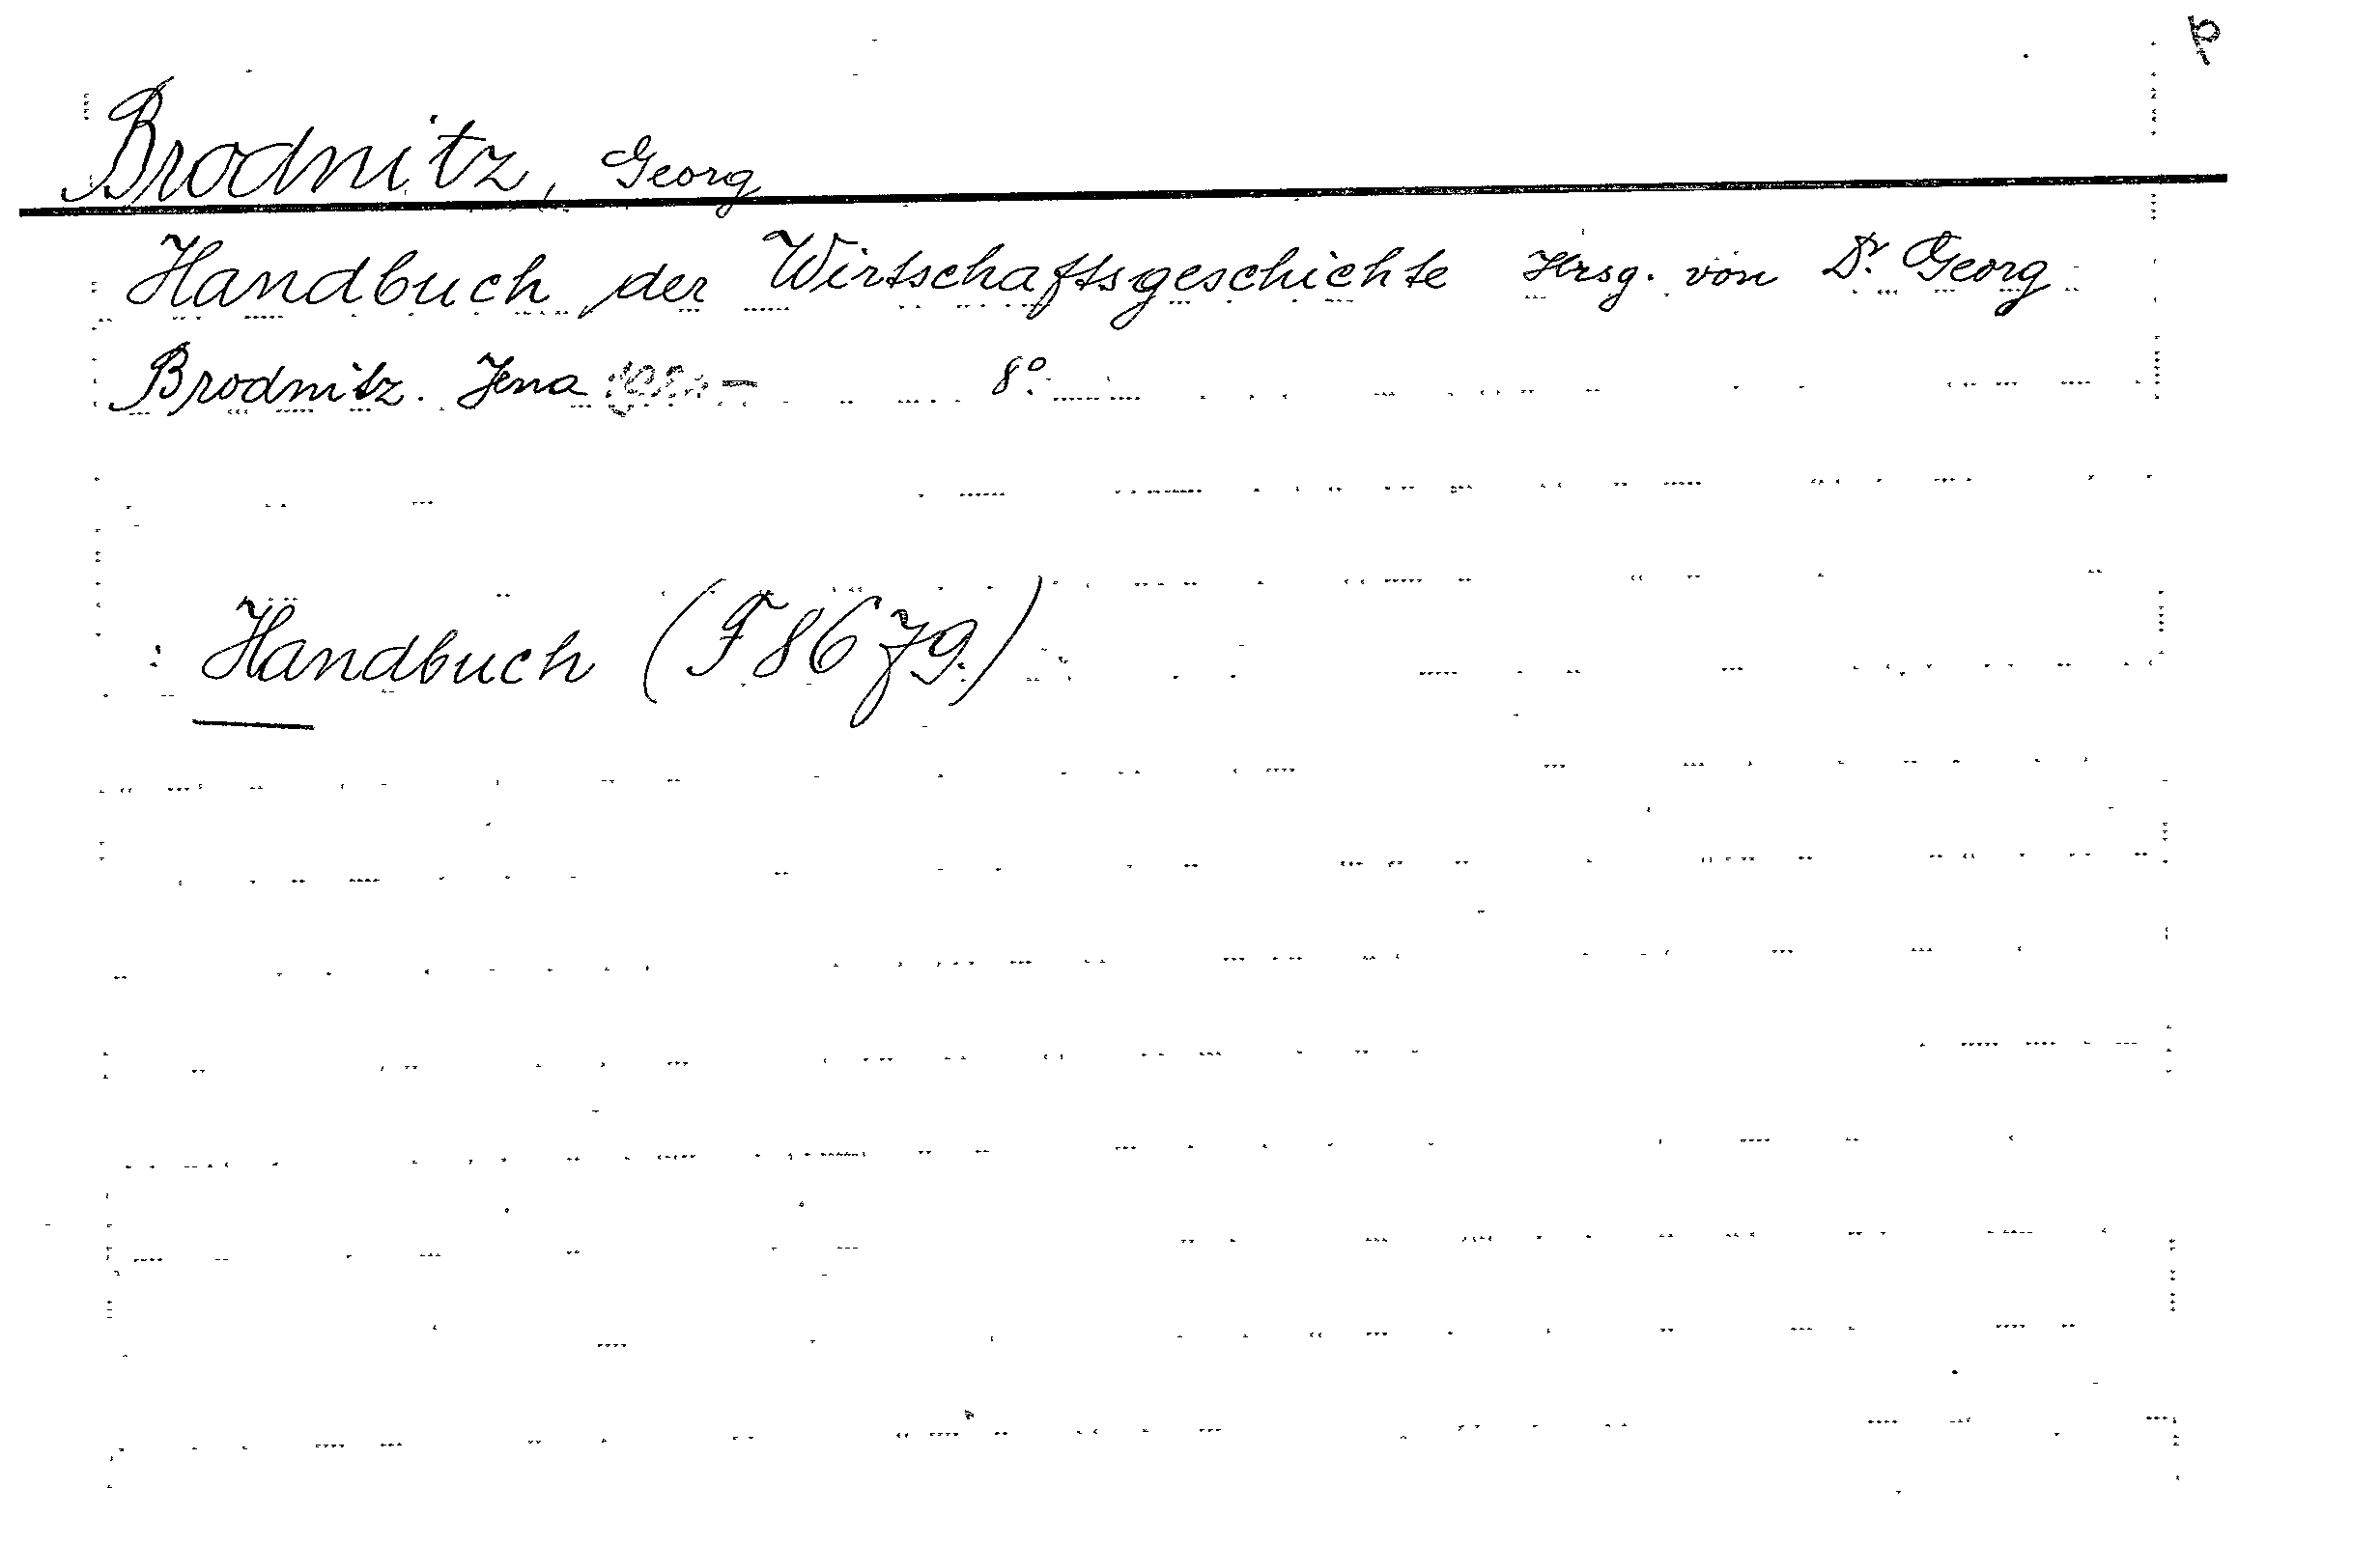 p
Brodnitz, Georg
Handbuch der Wirtschaftsgeschichte Hrsg. von Dr. Georg
Brodnitz. Jena — 8°.
: Handbuch (F 8679.)